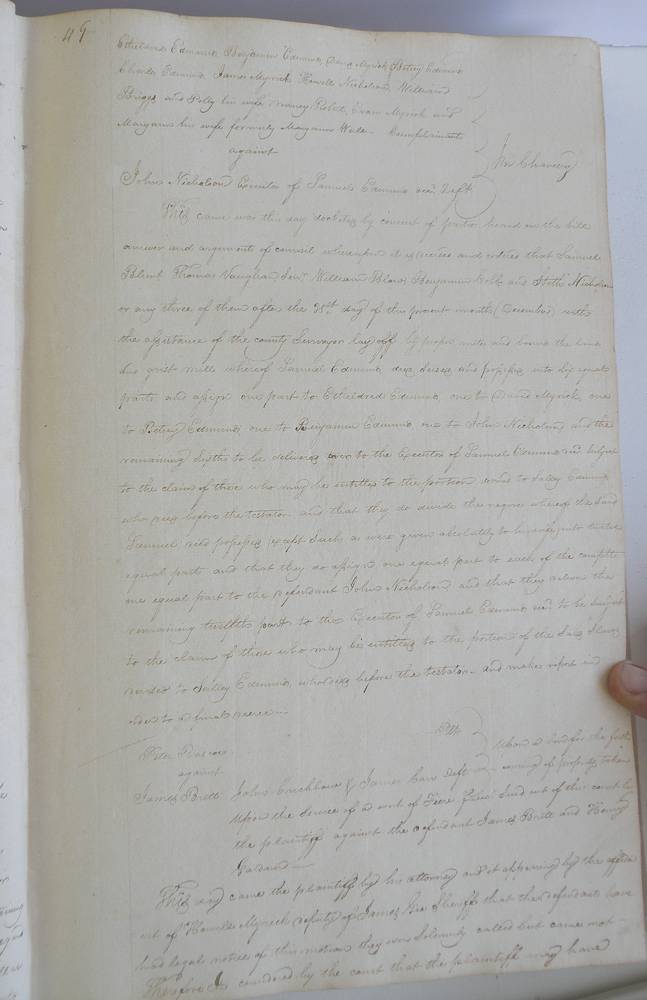 49
Etheldred Edmunds Benjamin Edmunds, David Myrick, Betsey Edmunds
Charles Edmunds, James Myrick Howell Nicholson, William
Briggs and Polly his wife Nancy Evans Myrick and
Margaret his wife formerly Margaret Wall Complainants
against
In Chancery
John Nicholson Executor of Samuel Edmunds decd. Deft.
This came was this day docketed by consent of parties heard on the bill
answer and arguments of counsel whereupon it is decreed and ordered that Samuel
Blunt Thomas Vaughan Senr. William Blow, Benjamin Cobb and Nicholson
or any three of them after the 25th. day of this present month (December) with
the assistance of the county Surveyor lay off by proper metes and bounds the land
and grist mill whereof Samuel Edmunds died seised and possessed into six equal
parts and assign one part to Etheldred Edmunds one to David Myrick, one
to Betsey Edmunds one to Benjamin Edmunds one to John Nicholson, and the
remaining sixths to be delivered over to the Executor of Samuel Edmunds decd. subject
to the claim of those who may be entitled to the portion to Salley Edmunds
who died before the testator and that they do divide the negroes whereof the said
Samuel died possessed (except such as were given absolutely to ) into twelve
equal parts and that they do assign one equal part to each of the complts.
one equal part to the defendant John Nicholson and that they deliver the
remaining twelfths part to the Executor of Samuel Edmunds decd. to be subject
to the claim of those who may be entitled to the portion of the said slaves
devised to Salley Edmunds, who died before the testator and make report in
order to a final decree
Peter Plt.
against
James Britt John Crichlow & James Carr Deft
Upon a bond for the forth
coming of property taken
upon the service of a writ of Fiere facias Sued out of this court by
the plaintiff against the defendant James Britt and Henry

This day came the plaintiff by his attorney and it appearing by the affida
vit of Howell Myrick deputy of James Sheriff that the defendants have
had legal notice of this motion they were solemnly called but came not
Therefore It is considered by the court that the plaintiff may have